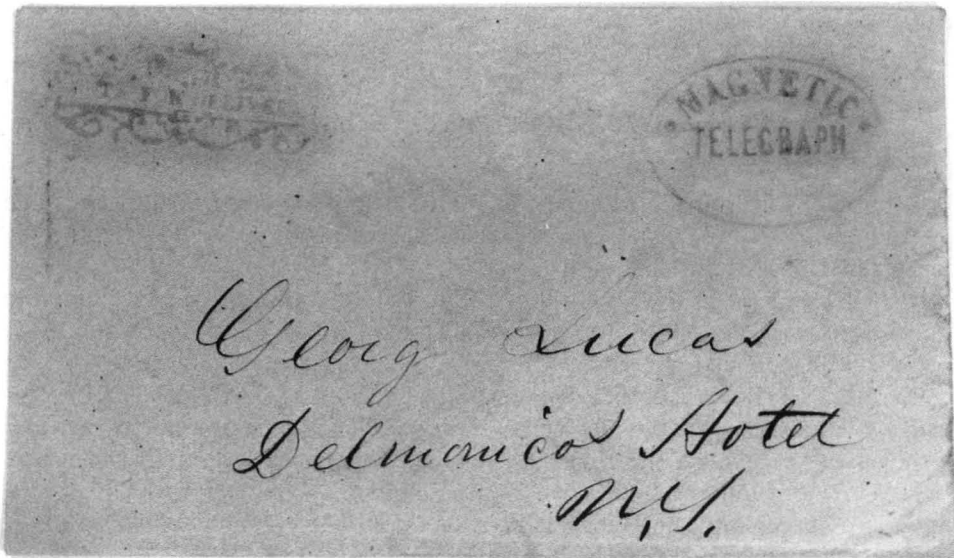 MAGNETIC
TELEGRAPH
Georg Lucas
Delmonico Hotel
N.Y.